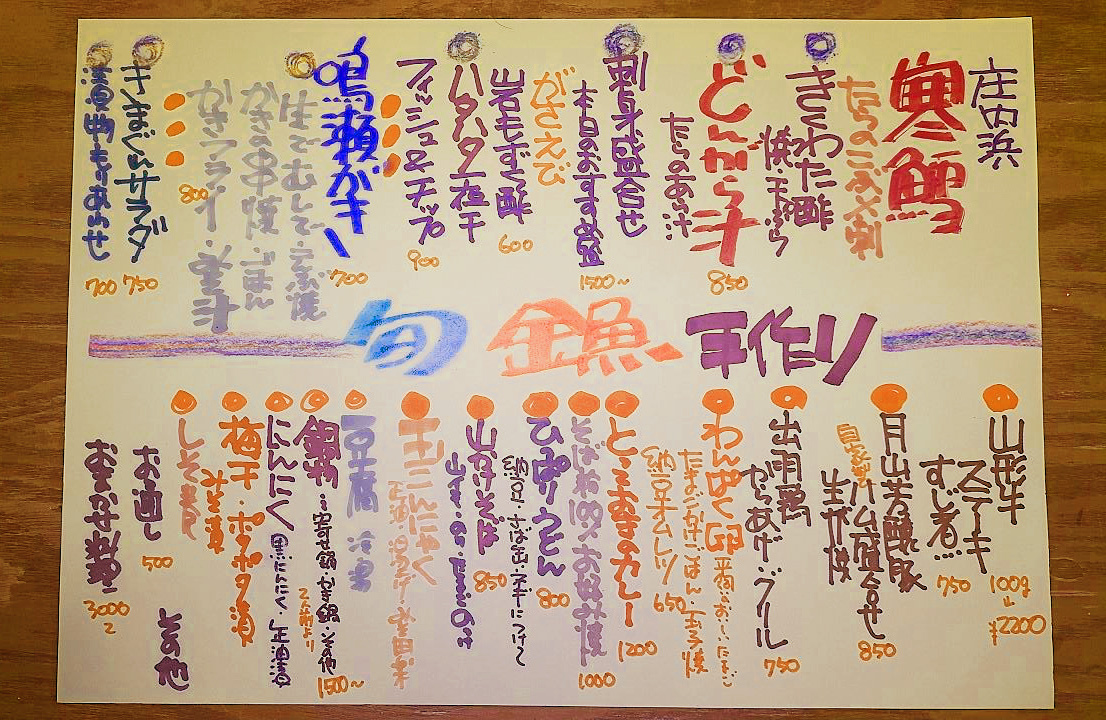 庄内浜
寒鱈
たらのこぶ〆刺
きくわた酢
焼・天ぷら
どんがら汁
850
たらのあら汁
刺身盛合せ
本日のおすすめ盛
1500~
がさえび
岩もずく酢
600
ハタハタ一夜干
フィッシュ&チップ
900
鳴瀬がき
700
生でむして・
かきの串焼・ごはん
かきフライ・
800
サラダ
750
漬物
700
旬 金魚 手作り
山形牛
ステーキ
100g
¥2200
すじ煮
750
月山芳醸豚
自家製ハム盛合せ
850
生が焼
出羽鶏
からあげ・グリル
750
わんぱく卵
たまごかけごはん・玉子焼
納豆オムレツ
650
とっておきのカレー
1200
お好み焼
1000
ひっぱりうどん
納豆・さば缶・ネギにつけて
800
山かけそば
850
玉こんにゃく
豆腐
鍋物…寄せ鍋・かき鍋・その他
2人前より
1500~
にんにく
黒にんにく・正油漬
梅干・ポタポタ漬
みそ漬
しそ巻
お通し
500
その他
おまかせ料理
3000